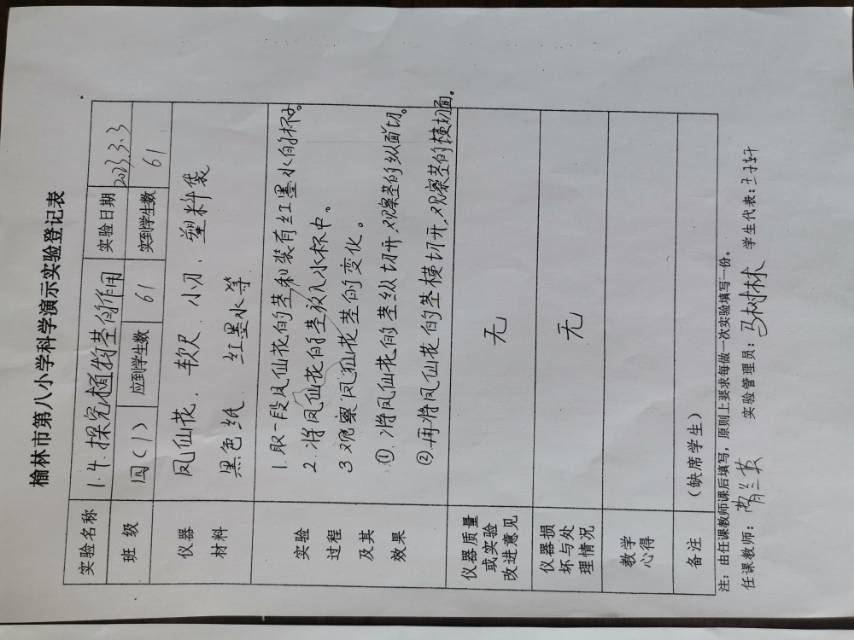 榆林市第八小学科学演示实验登记表
实验名称 1.4.探究植物茎的作用 实验日期 2023.3.3
班 级 四(1) 应到学生数 61 实到学生数 61
仪器 凤仙花、软尺、小刀、塑料袋
材料 黑色纸、红墨水等
实验 1.取一段凤仙花的茎和装有红墨水的杯子。
过程 2.将凤仙花的茎放入水杯中。
及其 3 观察凤仙花茎的变化。
效果 ①.将凤仙花的茎纵切开,观察茎的纵面切。
②再将凤仙花的茎横切开,观察茎的横切面。
仪器质量
或实验 无
改进意见
仪器损
坏与处 无
理情况
教学
心得
备注 (缺席学生)
注:由任课教师课后填写,原则上要求每做一次实验填写一份。
任课教师: 兰英 实验管理员:马树林 学生代表: